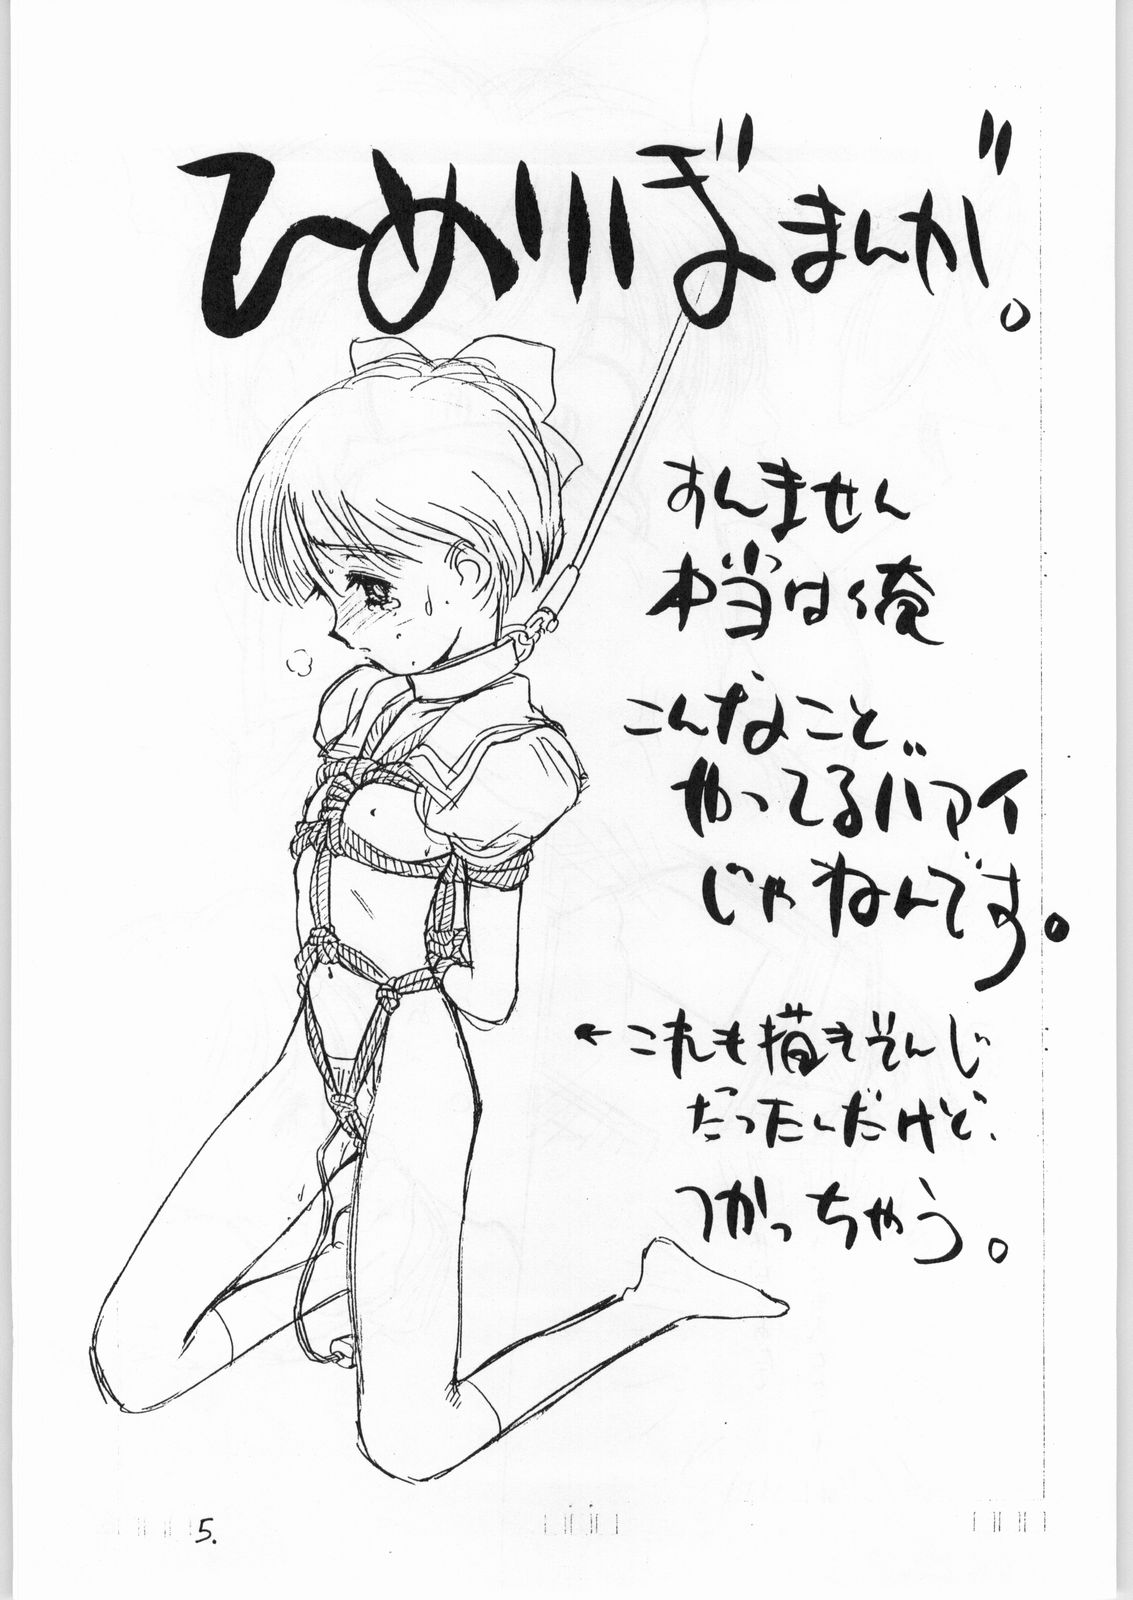 ひめ川ぼまんが。
すんません
本当は俺
こんなこと、
やってるバアイ
じゃねんです。
←これも描きそんじ
だったんだけど、
つかっちゃう。
5.